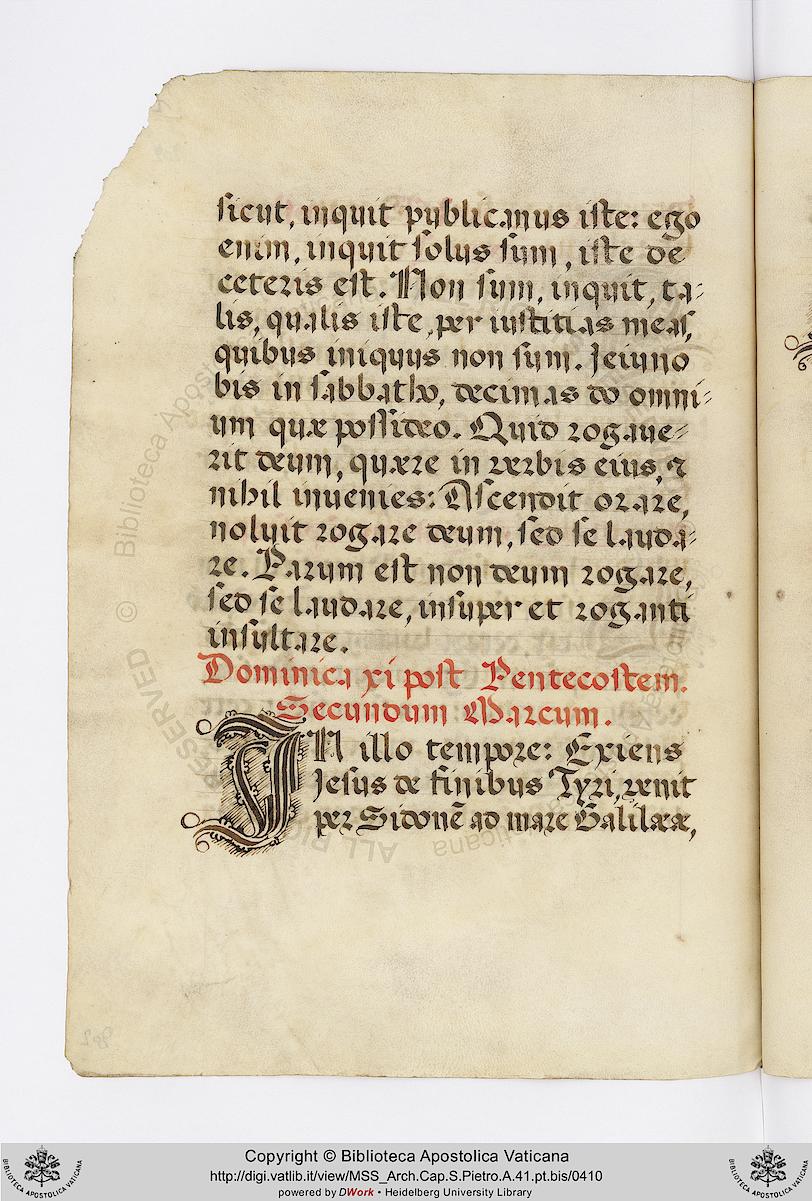 sicut, inquit publicanus iste: ego
enim, inquit solus sum, iste de
ceteris est. Non sum, inquit, ta-
lis, qualis iste, per iustitias meas,
quibus iniquus non sum. Ieiuno
bis in sabbatho, decimas do omni-
um quæ possideo. Quid rogaue-
rit deum, quære in verbis eius, &
nihil inuenies: Ascendit orare,
noluit rogare deum, sed se lauda-
re. Parum est non deum rogare,
sed se laudare, insuper et roganti
insultare.
Dominica xi post Pentecostem.
Secundum Marcum.
IN illo tempore: Exiens
Jesus de finibus Tyri, venit
per Sidonē ad mare Galilææ,
© Biblioteca Apostolica Vaticana
ALL RIGHTS RESERVED
Copyright © Biblioteca Apostolica Vaticana
http://digi.vatlib.it/view/MSS_Arch.Cap.S.Pietro.A.41.pt.bis/0410
powered by DWork • Heidelberg University Library